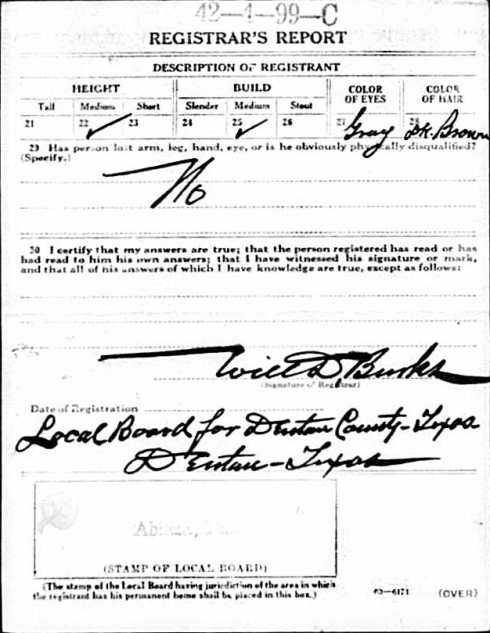 42-4-99-C
REGISTRAR'S REPORT
DESCRIPTION OF REGISTRANT
HEIGHT BUILD COLOR OF EYES COLOR OF HAIR
Tall Medium Short Slender Medium Stout
21 22 ✓ 23 24 25 ✓ 26 27 Gray 28 Dk. Brown
29 Has person lost arm, leg, hand, eye, or is he obviously physically disqualified?
(Specify.)
No
30 I certify that my answers are true; that the person registered has read or has
had read to him his own answers; that I have witnessed his signature or mark,
and that all of his answers of which I have knowledge are true, except as follows:
Will D Burks
(Signature of Registrar)
Date of Registration
Local Board for Denton County-Texas
Denton-Texas
(STAMP OF LOCAL BOARD)
(The stamp of the Local Board having jurisdiction of the area in which
the registrant has his permanent home shall be placed in this box.)
63-6171 (OVER)